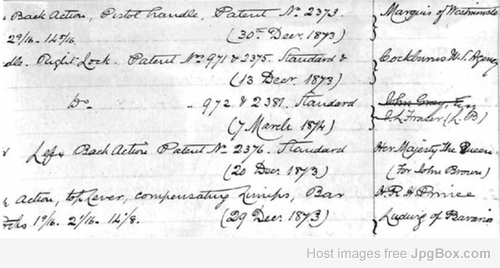 Back Action, Pistol handle, Patent No. 2373. Marquis of Westminster
2 9/16 - 14 9/16. (30th Decr. 1873)
dle. Right Lock. Patent Nos. 971 & 2375. Standard & Cockburns W. S. Agency
(13 Decr. 1873)
Do " 972 & 2381. Standard John Grey, Esq
(7 March 1874) C. L. Fraser (L. B)
Left Back Action Patent No. 2376. Standard Her Majesty the Queen
(20 Decr. 1873) (for John Brown)
Action, top lever, compensating lumps, Bar H. R. H Prince
Locks 1 9/16 - 2 7/16 - 14 1/8. (29 Decr. 1873) Ludwig of Bavaria
Host images free JpgBox.com